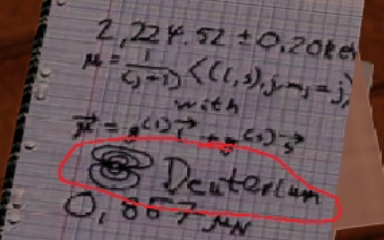 2,224.52 ± 0,20 keV
μ = 1/(j+1) ⟨(l,s),j,mⱼ=j
with
μ⃗ = g⁽ˡ⁾ l⃗ + g⁽ˢ⁾ s⃗
Deuterium
0,857 μN